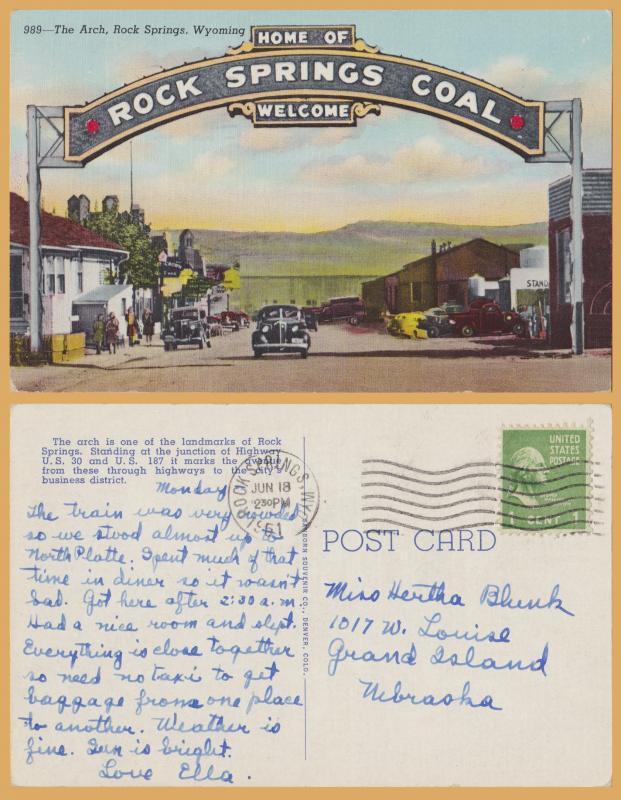 989—The Arch, Rock Springs, Wyoming
HOME OF
ROCK SPRINGS COAL
WELCOME
STAND
The arch is one of the landmarks of Rock
Springs. Standing at the junction of Highway
U. S. 30 and U. S. 187 it marks the avenue
from these through highways to the city's
business district.
Monday
The train was very crowded
so we stood almost up to
North Platte. Spent much of that
time in diner so it wasn't
bad. Got here after 2:30 a.m.
Had a nice room and slept.
Everything is close together
so need no taxi to get
baggage from one place
to another. Weather is
fine. Sun is bright.
Love Ella.
SANBORN SOUVENIR CO., DENVER, COLO.
ROCK SPRINGS, WYO.
JUN 18
230 PM
1951
UNITED
STATES
POSTAGE
1 CENT 1
POST CARD
Miss Hertha Blunk
1017 W. Louise
Grand Island
Nebraska